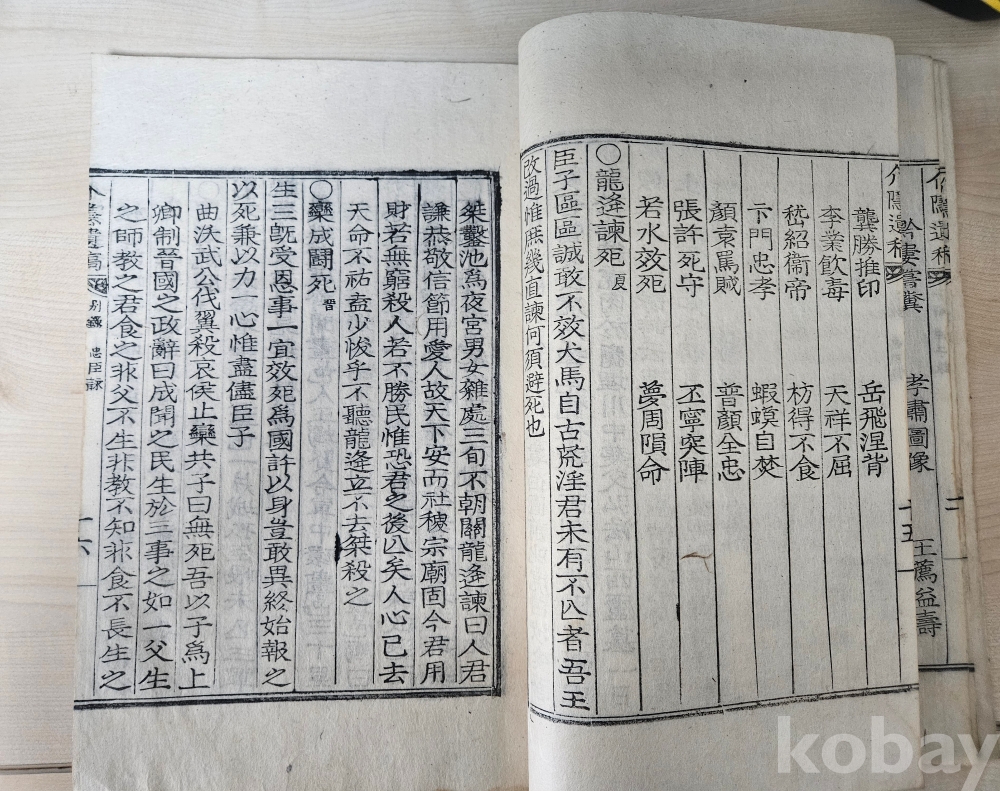 孝肅圖像
王薦益壽
介隱遺稿
十五
龔勝推印
岳飛涅背
李業飮毒
天祥不屈
嵇紹衛帝
枋得不食
卞門忠孝
蝦蟆自焚
顏袁罵賊
普顏全忠
張許死守
丕寧突陣
若水效死
夢周隕命
○龍逄諫死 夏
臣子區區誠敢不效犬馬自古荒淫君未有不亾者吾王
改過惟庶幾直諫何須避死也
桀鑿池爲夜宮男女雜處三旬不朝關龍逄諫曰人君
謙恭敬信節用愛人故天下安而社稷宗廟固今君用
財若無窮殺人若不勝民惟恐君之後亾矣人心已去
天命不祐盍少悛乎不聽龍逄立不去桀殺之
○欒成鬪死 晉
生三旣受恩事一宜效死爲國許以身豈敢異終始報之
以死兼以力一心惟盡儘臣子
曲沃武公伐翼殺哀侯止欒共子曰無死吾以子爲上
卿制晉國之政辭曰成聞之民生於三事之如一父生
之師敎之君食之非父不生非敎不知非食不長生之
介隱遺稿
別錄
忠臣詠
十六
kobay